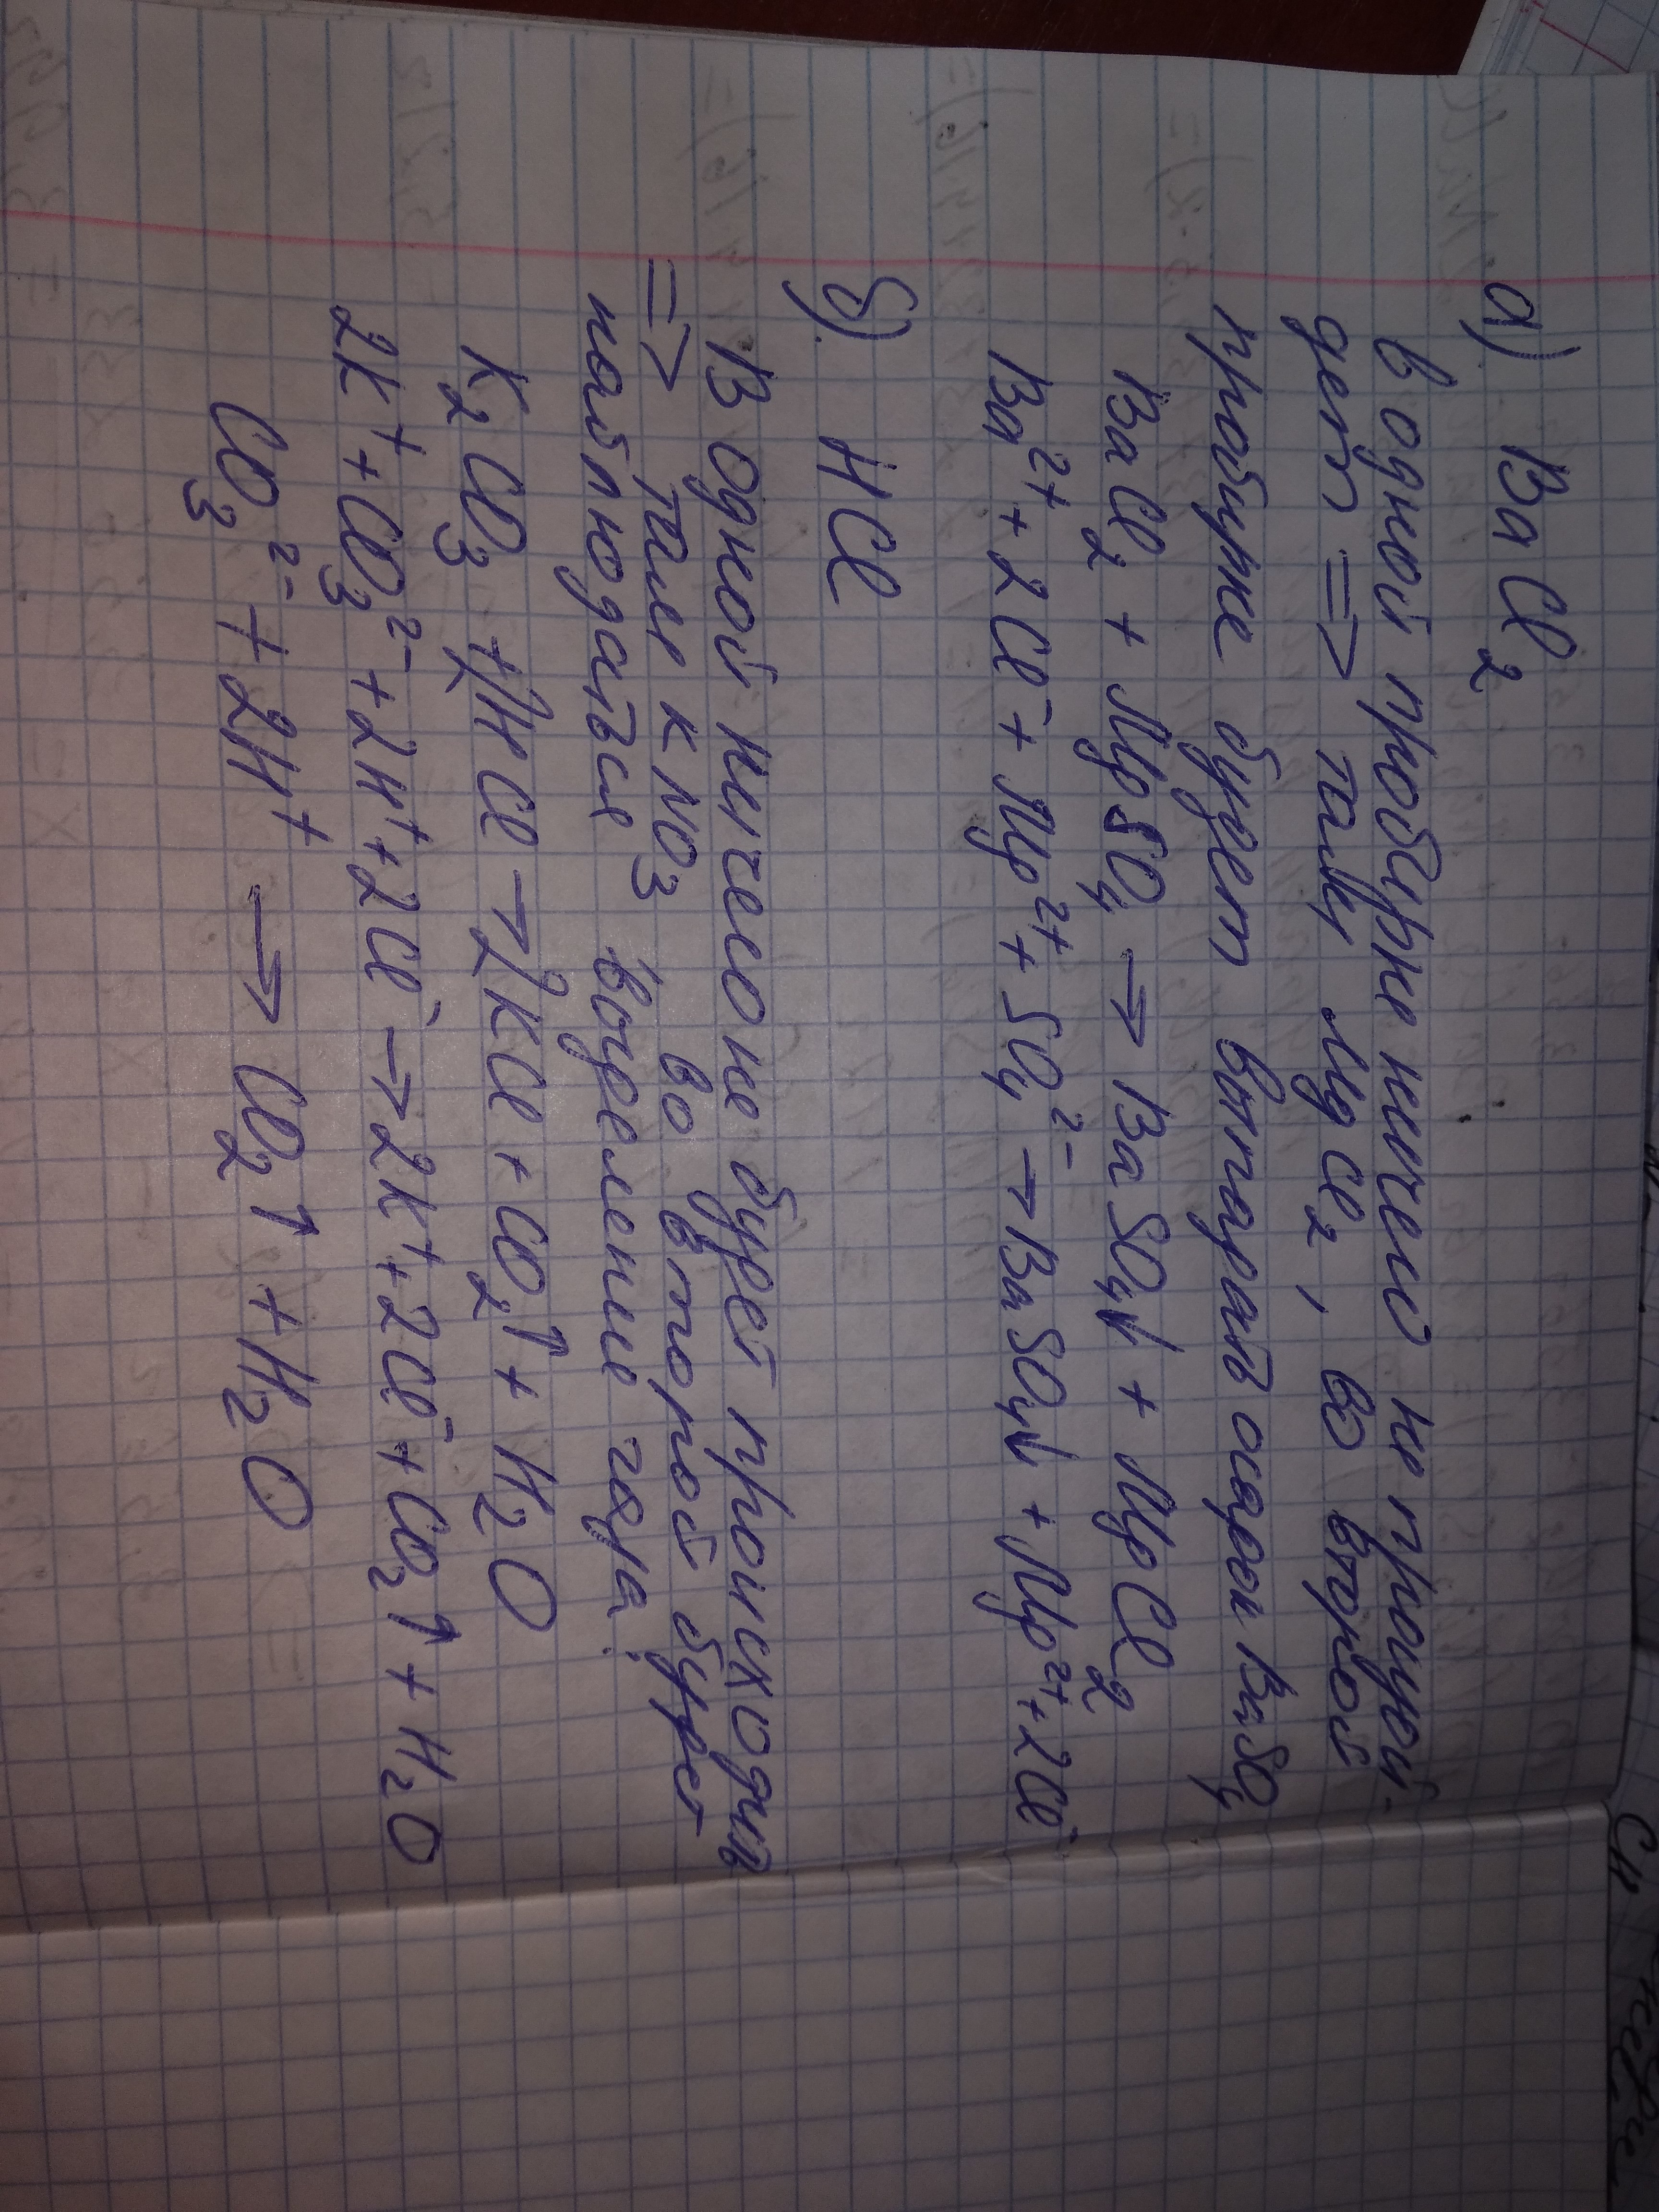 а) BaCl2
в одной пробирке ничего не произой-
дет => там MgCl2, во второй
пробирке будет выпадать осадок BaSO4
BaCl2 + MgSO4 → BaSO4↓ + MgCl2
Ba2+ + 2Cl- + Mg2+ + SO42- → BaSO4↓ + Mg2+ + 2Cl-
б). HCl
В одной ничего не будет происходить
=> там KNO3 во второй будет
наблюдаться выделение газа:
K2CO3 + 2HCl → 2KCl + CO2↑ + H2O
2K+ + CO32- + 2H+ + 2Cl- → 2K+ + 2Cl- + CO2↑ + H2O
CO32- + 2H+ → CO2↑ + H2O